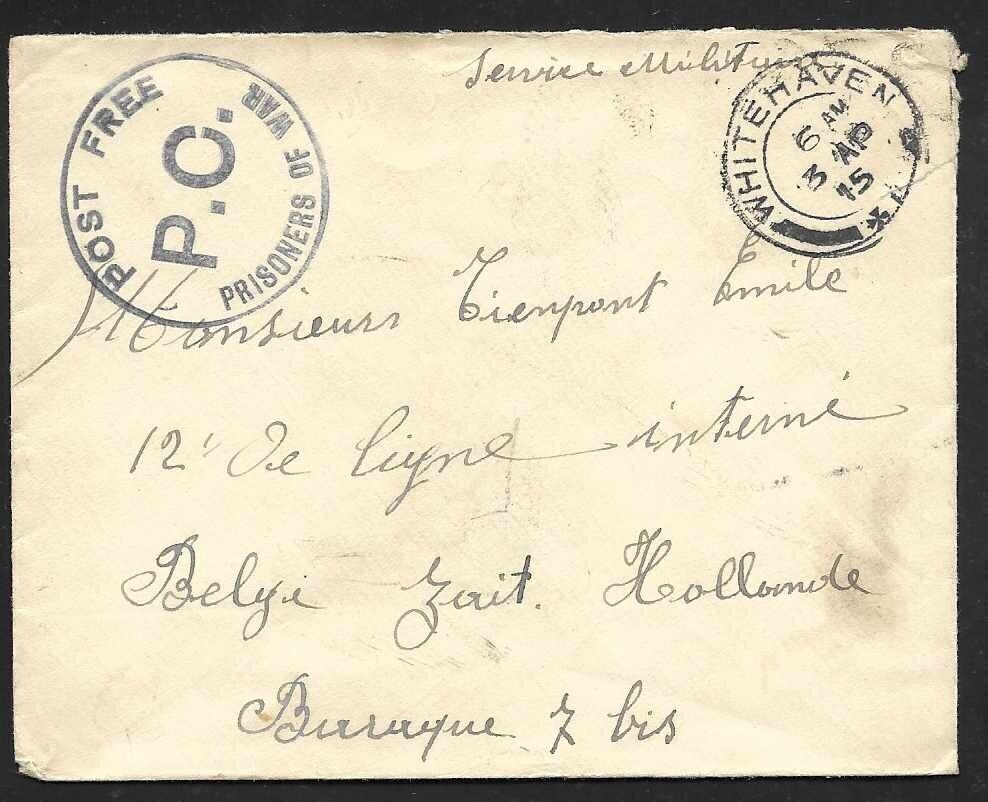 Service Militaire
POST FREE
P.C.
PRISONERS OF WAR
WHITEHAVEN
6 AM
3 AP
15
Monsieur Tienpont Emile
12' de ligne interné
Belge Zeist. Hollande
Baraque 7 bis